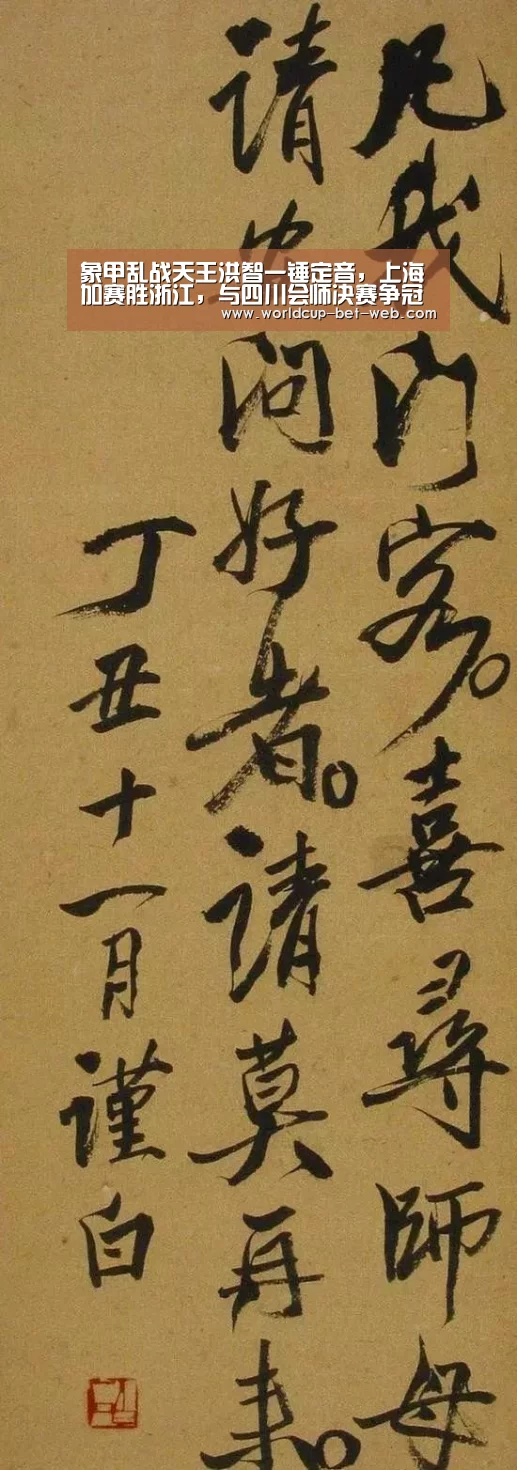 象甲乱战天王洪智一锤定音，上海
加赛胜浙江，与四川会师决赛争冠
www.worldcup-bet-web.com
凡我門客。喜尋師母
請問好者。請莫再來。
丁丑十一月謹白